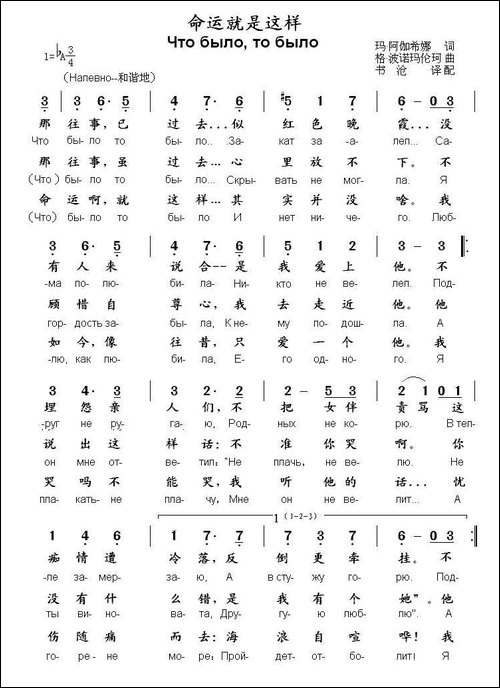 命运就是这样
Что было, то было
1=♭A 3/4
（Напевно--和谐地）
玛·阿伽希娜 词
格·波诺玛伦珂 曲
书 沧 译配
3 | 3 6· 5 | 4 7· 6 | #5 1 7 | 6 – 0 3 |
那 往事,已 过 去...似 红 色 晚 霞...没
Что бы-ло то бы-ло.. За- кат за -а- лел... Са-
那 往事,虽 过 去...心 里 放 不 下。不
(Что) бы-ло то бы-ло... Скры- вать не мог- ла. Я
命 运啊,就 这 样...其 实 并 没 啥。我
(Что) бы-ло то было И нет ни-че- го. Люб-
3 6· 5 | 4 7· 6 | 5 1 2 | 3 – 3 :
有 人 来 说 合--是 我 爱 上 他。不
-ма по-лю- би-ла- Ни- кто не ве- лел. Под-
顾 惜 自 尊 心,我 去 走 近 他。他
гор- дость за- бы-ла, К не- му по-дош- ла. А
如 今,像 往 昔,只 爱 一 个 他。我
-лю, как лю- би-ла, Е- го од-но- го. Я
3 4· 3 | 3 2· 2 | 2 – 5 3 | 2 1 0 1 |
埋 怨 亲 人 们,不 把 女 伴 责 骂 这
-руг не ру- га-ю, Род- ных не ко- рю. В теп-
说 出 这 样 话:不 准 你 哭 啊。你
он мне от- ве-тил:"Не плачь, не ве- лю. Не
哭 吗 不 能 哭,我 听 他 的 话...忧
пла- кать-не пла- чу, Мне он не ве- лит... А
1（1-2-3）
1 4 6 | 1 7· 7 | 7 3 7 | 6 – 0 3 :
痴 情 遭 冷 落,反 倒 更 牵 挂。不
-ле за-мер- за-ю, А в сту-жу го- рю. Под-
没 有 什 么 错,是 我 有 个 她"。他
ты вино- ва-та, Дру- гу-ю любл- лю". А
伤 随 痛 而 去:海 浪 自 喧 哗！我
го- ре- не мо-ре: Прой- дет-от- бо- лит! Я